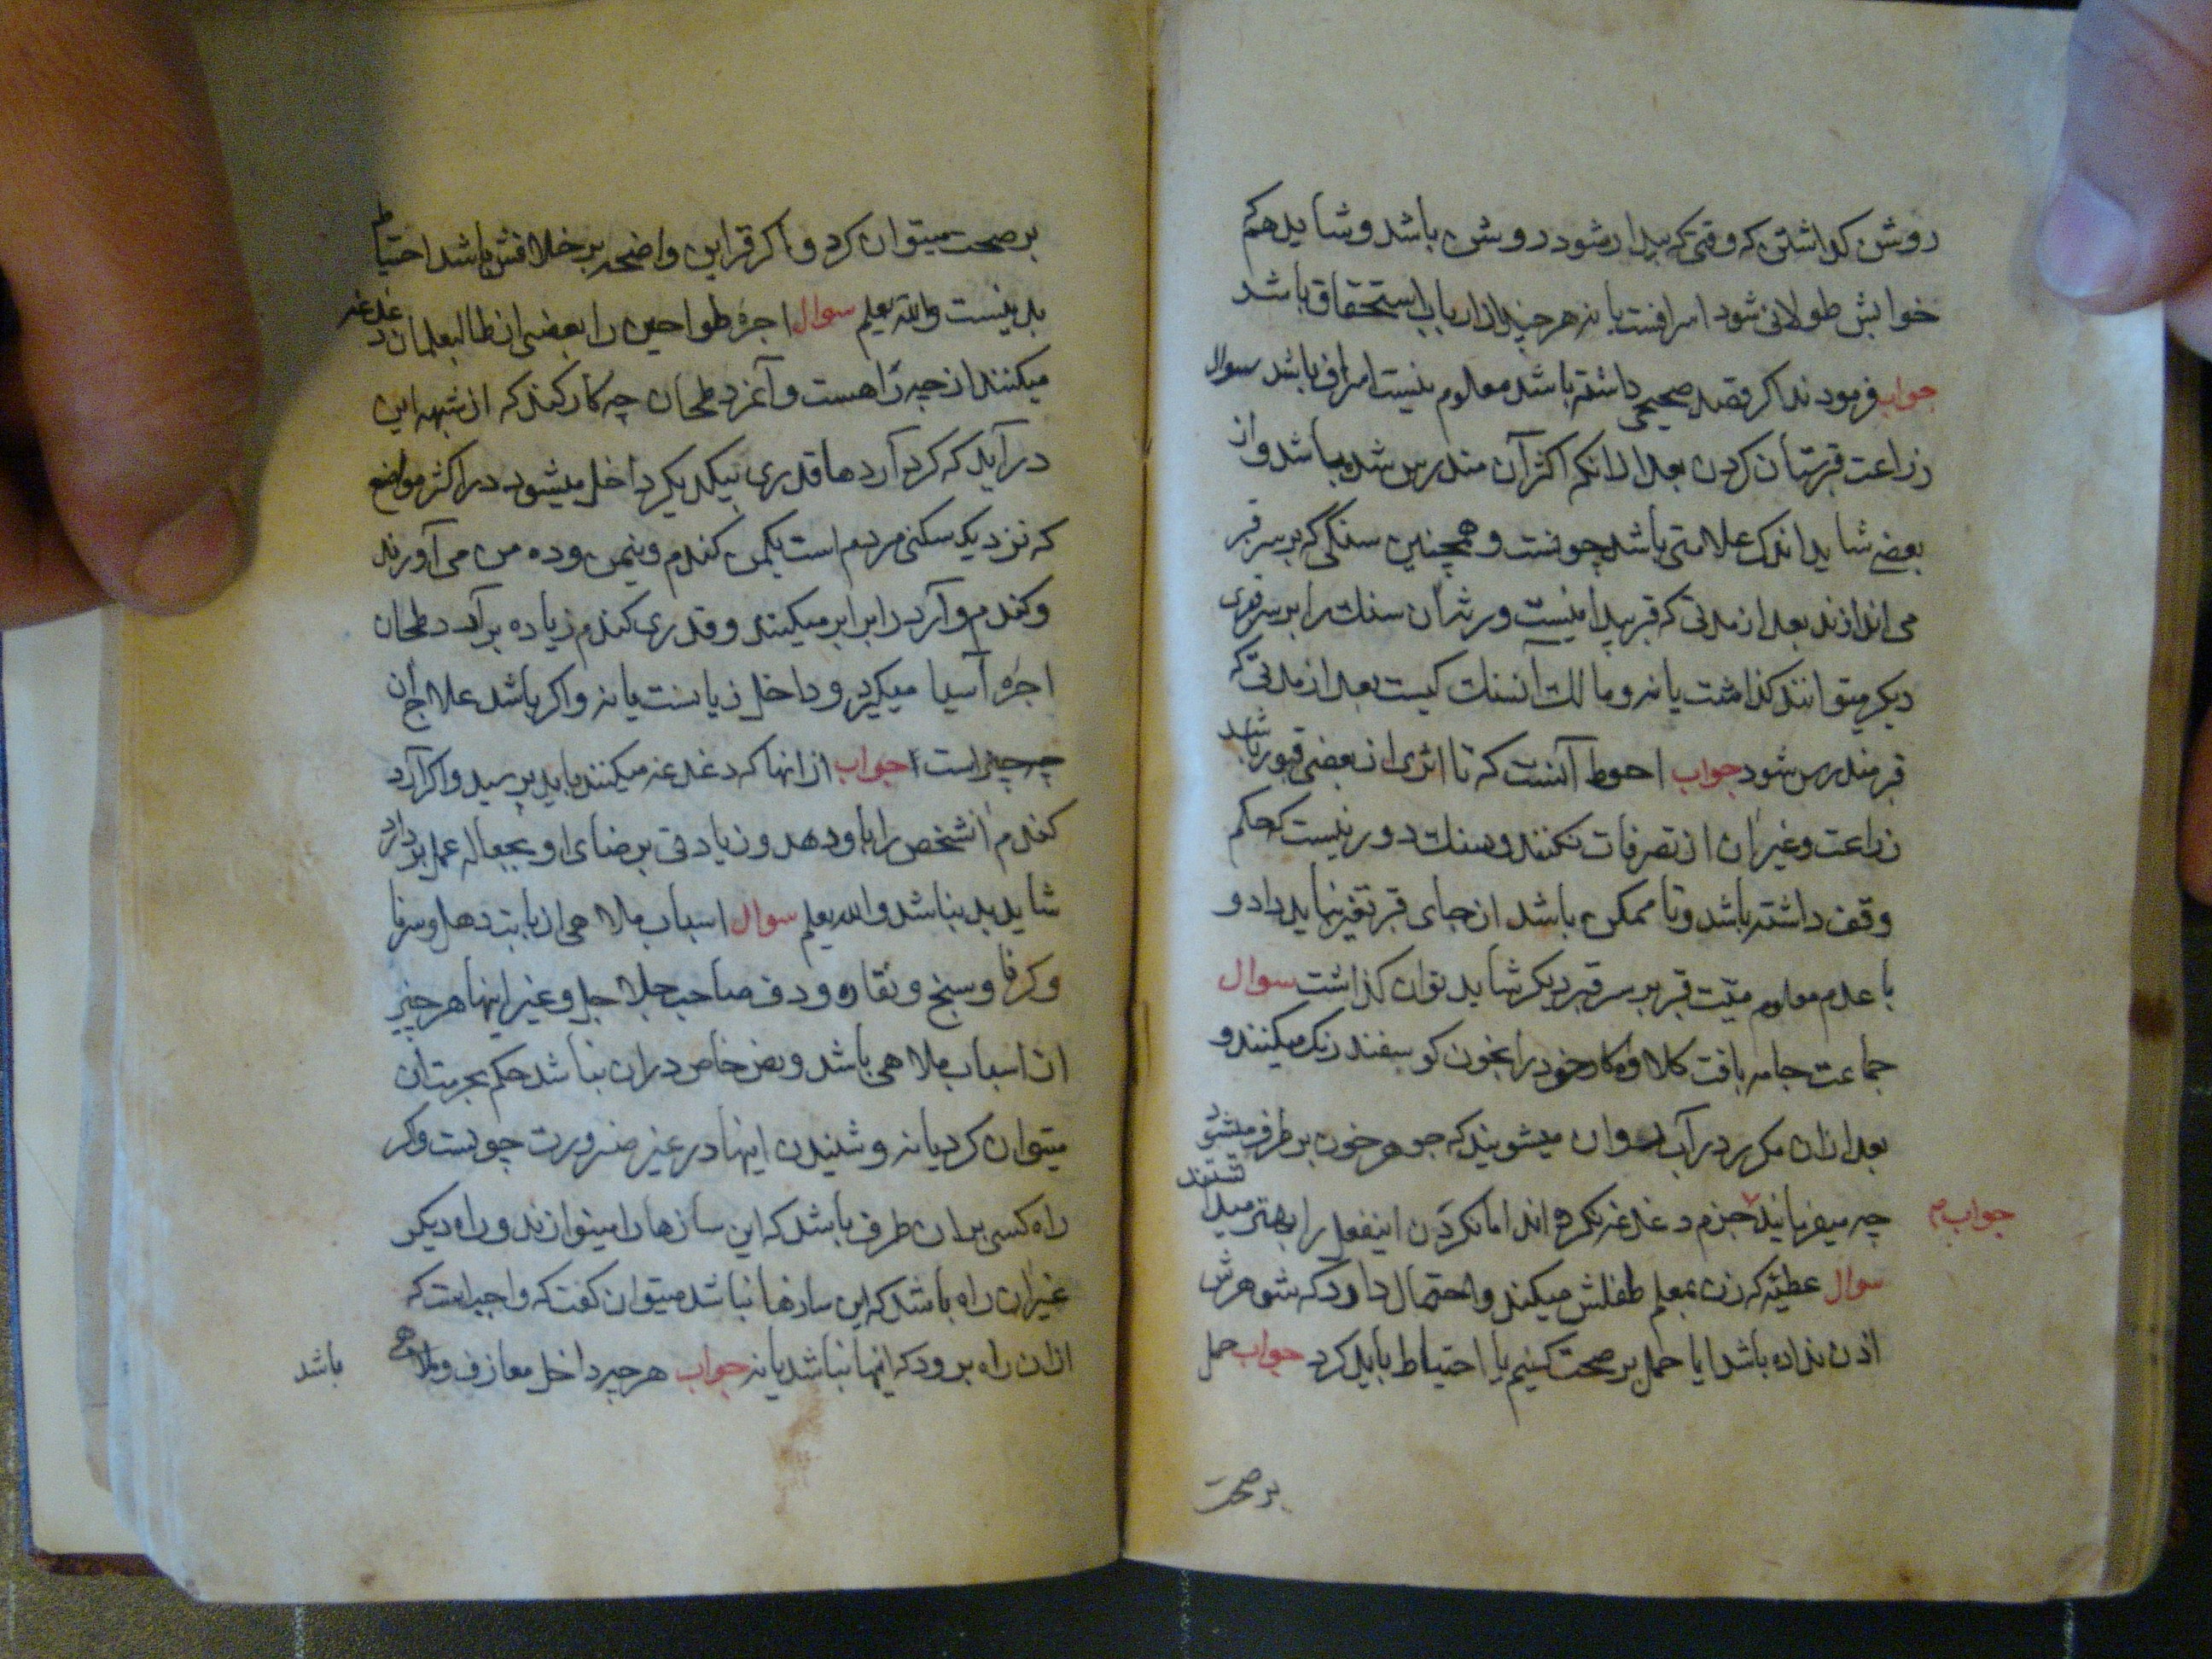 روشن کذاشتن که وقتی که بیدار شود روشن باشد و شاید هم
خوابش طولانی شود اسرافست یا نه هر چند از ارباب استحقاق باشد
جواب فرمودند اکر قصد صحیحی داشته باشد معلوم نیست اسراف باشد سوال
زراعت قبرستان کردن بعد از انکه اکثر آن مندرس شده باشد و از
بعضی شاید اندک علامتی باشد چونست و همچنین سنکی که بر سر قبر
می اندازند بعد از مدتی که قبر پیدا نیست ورثه آن سنک را بر سر قبری
دیکر میتوانند کذاشت یا نه و مالک آنسنک کیست بعد از مدتی که
قبر مندرس شود جواب احوط آنست که تا اثری از بعضی قبور باشد
زراعت و غیر ان از تصرفات نکنند و سنک دور نیست که حکم
وقف داشته باشد و تا ممکن باشد از جای قبر تغیر نباید داد و
با عدم معلومیّت قبر بر سر قبر دیکر شاید توان کذاشت سوال
جماعت جامه بافت کلاوه کار خود را بخون کوسفند رنک میکنند و
بعد از ان مکرر در آب روان میشویند که جوهر خون بر طرف میشود
چه میفرمایند جزم دغدغه نکرده اند اما نکردن اینفعل را بهتر میدانستند
جواب م
سوال عطیّه که زن بمعلم طفلش میکند و احتمال دارد که شوهرش
اذن نداده باشد ایا حمل بر صحت کنیم یا احتیاط باید کرد جواب حمل
بر صحت
بر صحت میتوان کرد و اکر قراین واضحه بر خلافش باشد احتیاط
بد نیست والله یعلم سوال اجرهٔ طواحین را بعضی از طالبعلمان دغدغه
میکنند از چه راهست و آنمزد طحان چه کار کند که از شبهه این
در آید که کرد آردها قدری بیکدیکر داخل میشود در اکثر مواضع
که نزدیک سکنی مردم است یکمن کندم و نیمن و ده من می آورند
و کندم و آرد را برابر میکنند و قدری کندم زیاده بر آرد طحان
اجرهٔ آسیا میکیرد و داخل زیاست یا نه و اکر باشد علاج ان
چه چیز است جواب از انها که دغدغه میکنند باید پرسید و اکر آرد
کندم انشخص را باو دهد و زیادتی برضای او بجعاله عمل بردارد
شاید بد نباشد والله یعلم سوال اسباب ملاهی از بابت دهل و سرنا
و کرنا و سنج و نقاره و دف صاحب جلاجل و غیر اینها هر چیز
از اسباب ملاهی باشد و نص خاص در ان نباشد حکم بحرمت ان
میتوان کرد یا نه و شنیدن اینها در غیر ضرورت چونست و اکر
راه کسی بر ان طرف باشد که این سازها را مینوازند و راه دیکر
غیر ان راه باشد که این سازها نباشد میتوان کفت که واجب است که
از ان راه برود که اینها نباشد یا نه جواب هر چه داخل معازف و ملاهی
باشد